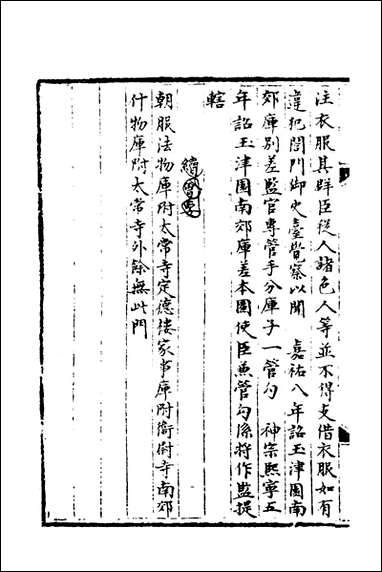 注衣服其群臣從人諸色人等並不得支借衣服如有
違犯閤門御史臺覺察以聞　嘉祐八年詔玉津園南
郊庫別差監官專管手分庫子一管勾　神宗熙寧五
年詔玉津園南郊庫差本園使臣兼管勾係將作監提
轄
續會要
朝服法物庫附太常寺定德樓家事庫附衛尉寺南郊
什物庫附太常寺外餘無此門